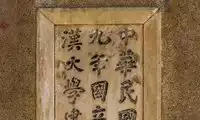 中華民國
九年國立
漢大學建